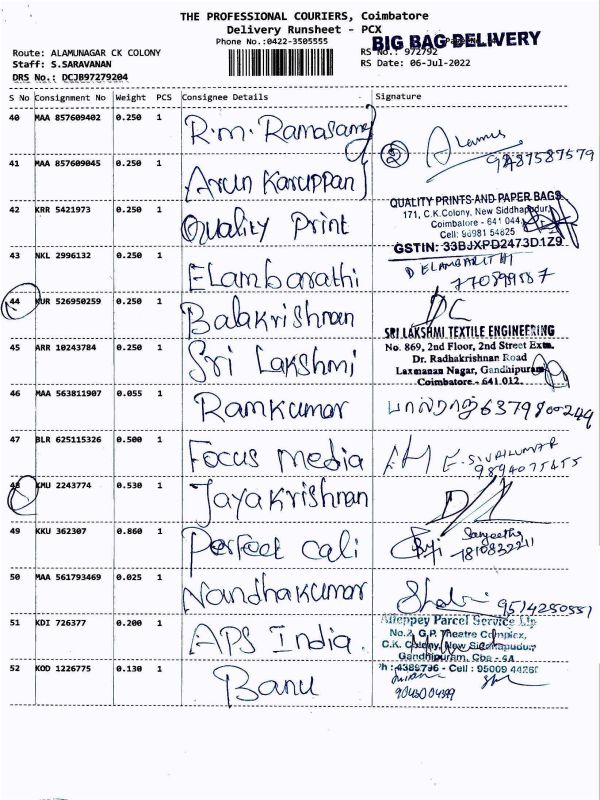 THE PROFESSIONAL COURIERS, Coimbatore
Delivery Runsheet - PCX
Phone No.:0422-3505555
BIG BAG DELIVERY
Route: ALAMUNAGAR CK COLONY
RS No.: 972792
Staff: S.SARAVANAN
RS Date: 06-Jul-2022
DRS No.: DCJB97279204
S No Consignment No Weight PCS Consignee Details Signature
40 MAA 857609402 0.250 1 R.M. Ramasamy
9487587579
41 MAA 857609045 0.250 1 Arun Karuppan
②
42 KRR 5421973 0.250 1 Quality Print
QUALITY PRINTS AND PAPER BAGS
171, C.K.Colony, New Siddhapudur,
Coimbatore - 641 044
Cell: 98981 54825
GSTIN: 33BJXPD2473D1Z9
43 NKL 2996132 0.250 1 Elambarathi
D ELAMBARITHI
44 KUR 526950259 0.250 1 Balakrishnan
DC
45 ARR 10243784 0.250 1 Sri Lakshmi
SRI LAKSHMI TEXTILE ENGINEERING
No. 869, 2nd Floor, 2nd Street Extn.
Dr. Radhakrishnan Road
Laxmanan Nagar, Gandhipuram
Coimbatore - 641 012.
46 MAA 563811907 0.055 1 Ramkumar
பால்ராஜ் 6379800249
47 BLR 625115326 0.500 1 Focus media
E. SIVAKUMAR
9894075455
48 KMU 2243774 0.530 1 Jayakrishnan
49 KKU 362307 0.860 1 Perfect cali
Sangeetha
50 MAA 561793469 0.025 1 Nandhakumar
9514280551
51 KDI 726377 0.200 1 APS India.
Alleppey Parcel Service Llp
No.2, G.P. Theatre Complex,
C.K. Colony, New Siddhapudur,
Gandhipuram, Cbe - 44
Ph : 4386796 - Cell : 95009 44260
52 KOD 1226775 0.130 1 Banu